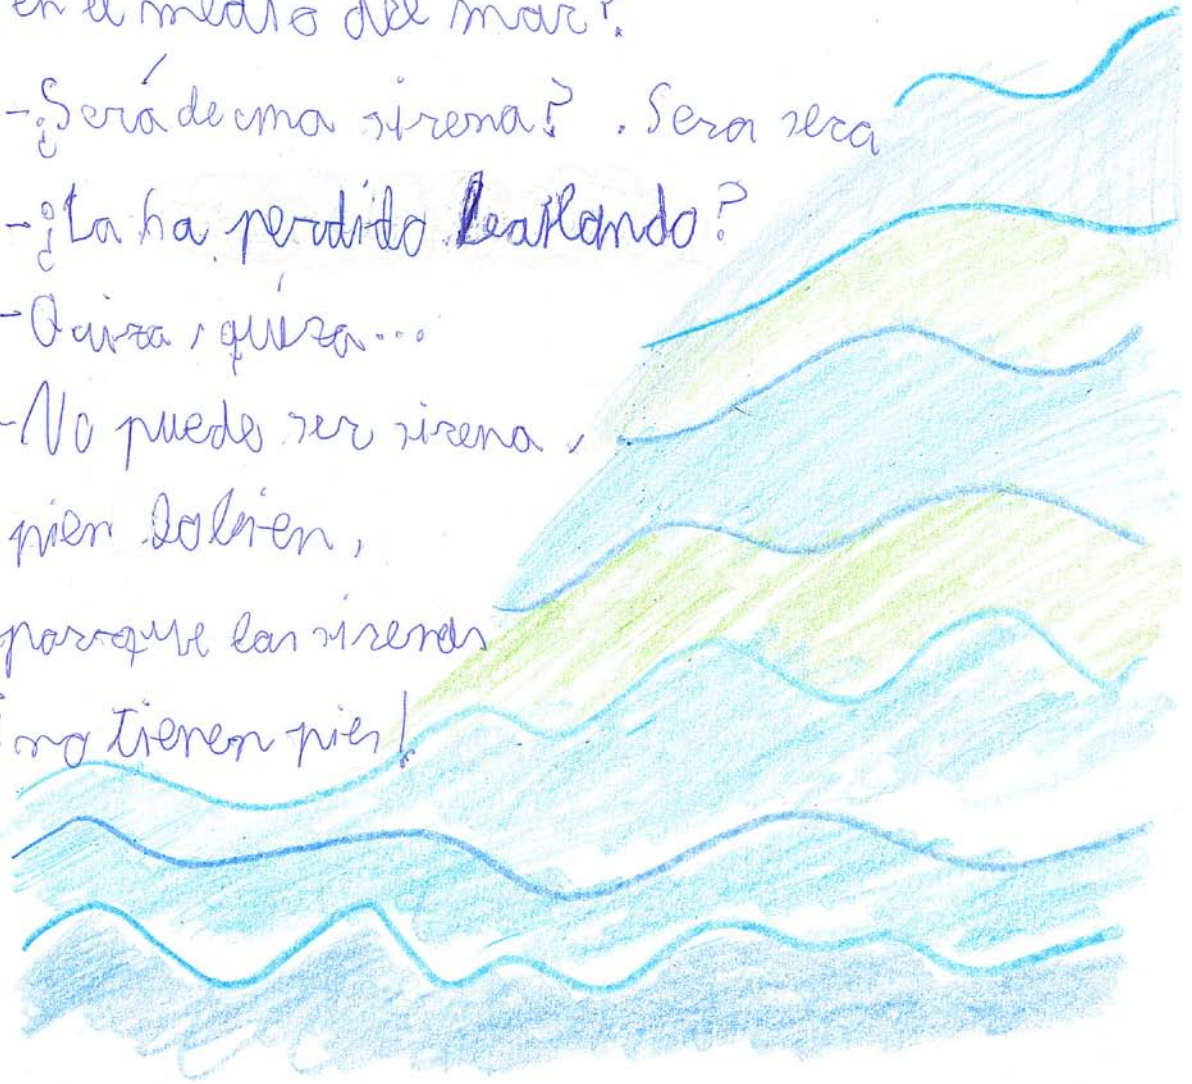 en el medio del mar?
-¿Será de una sirena? . Sera sera
-¿La ha perdido bailando?
-Quiza, quiza...
-No puede ser sirena,
pien
porque las sirenas
¡no tienen pies!